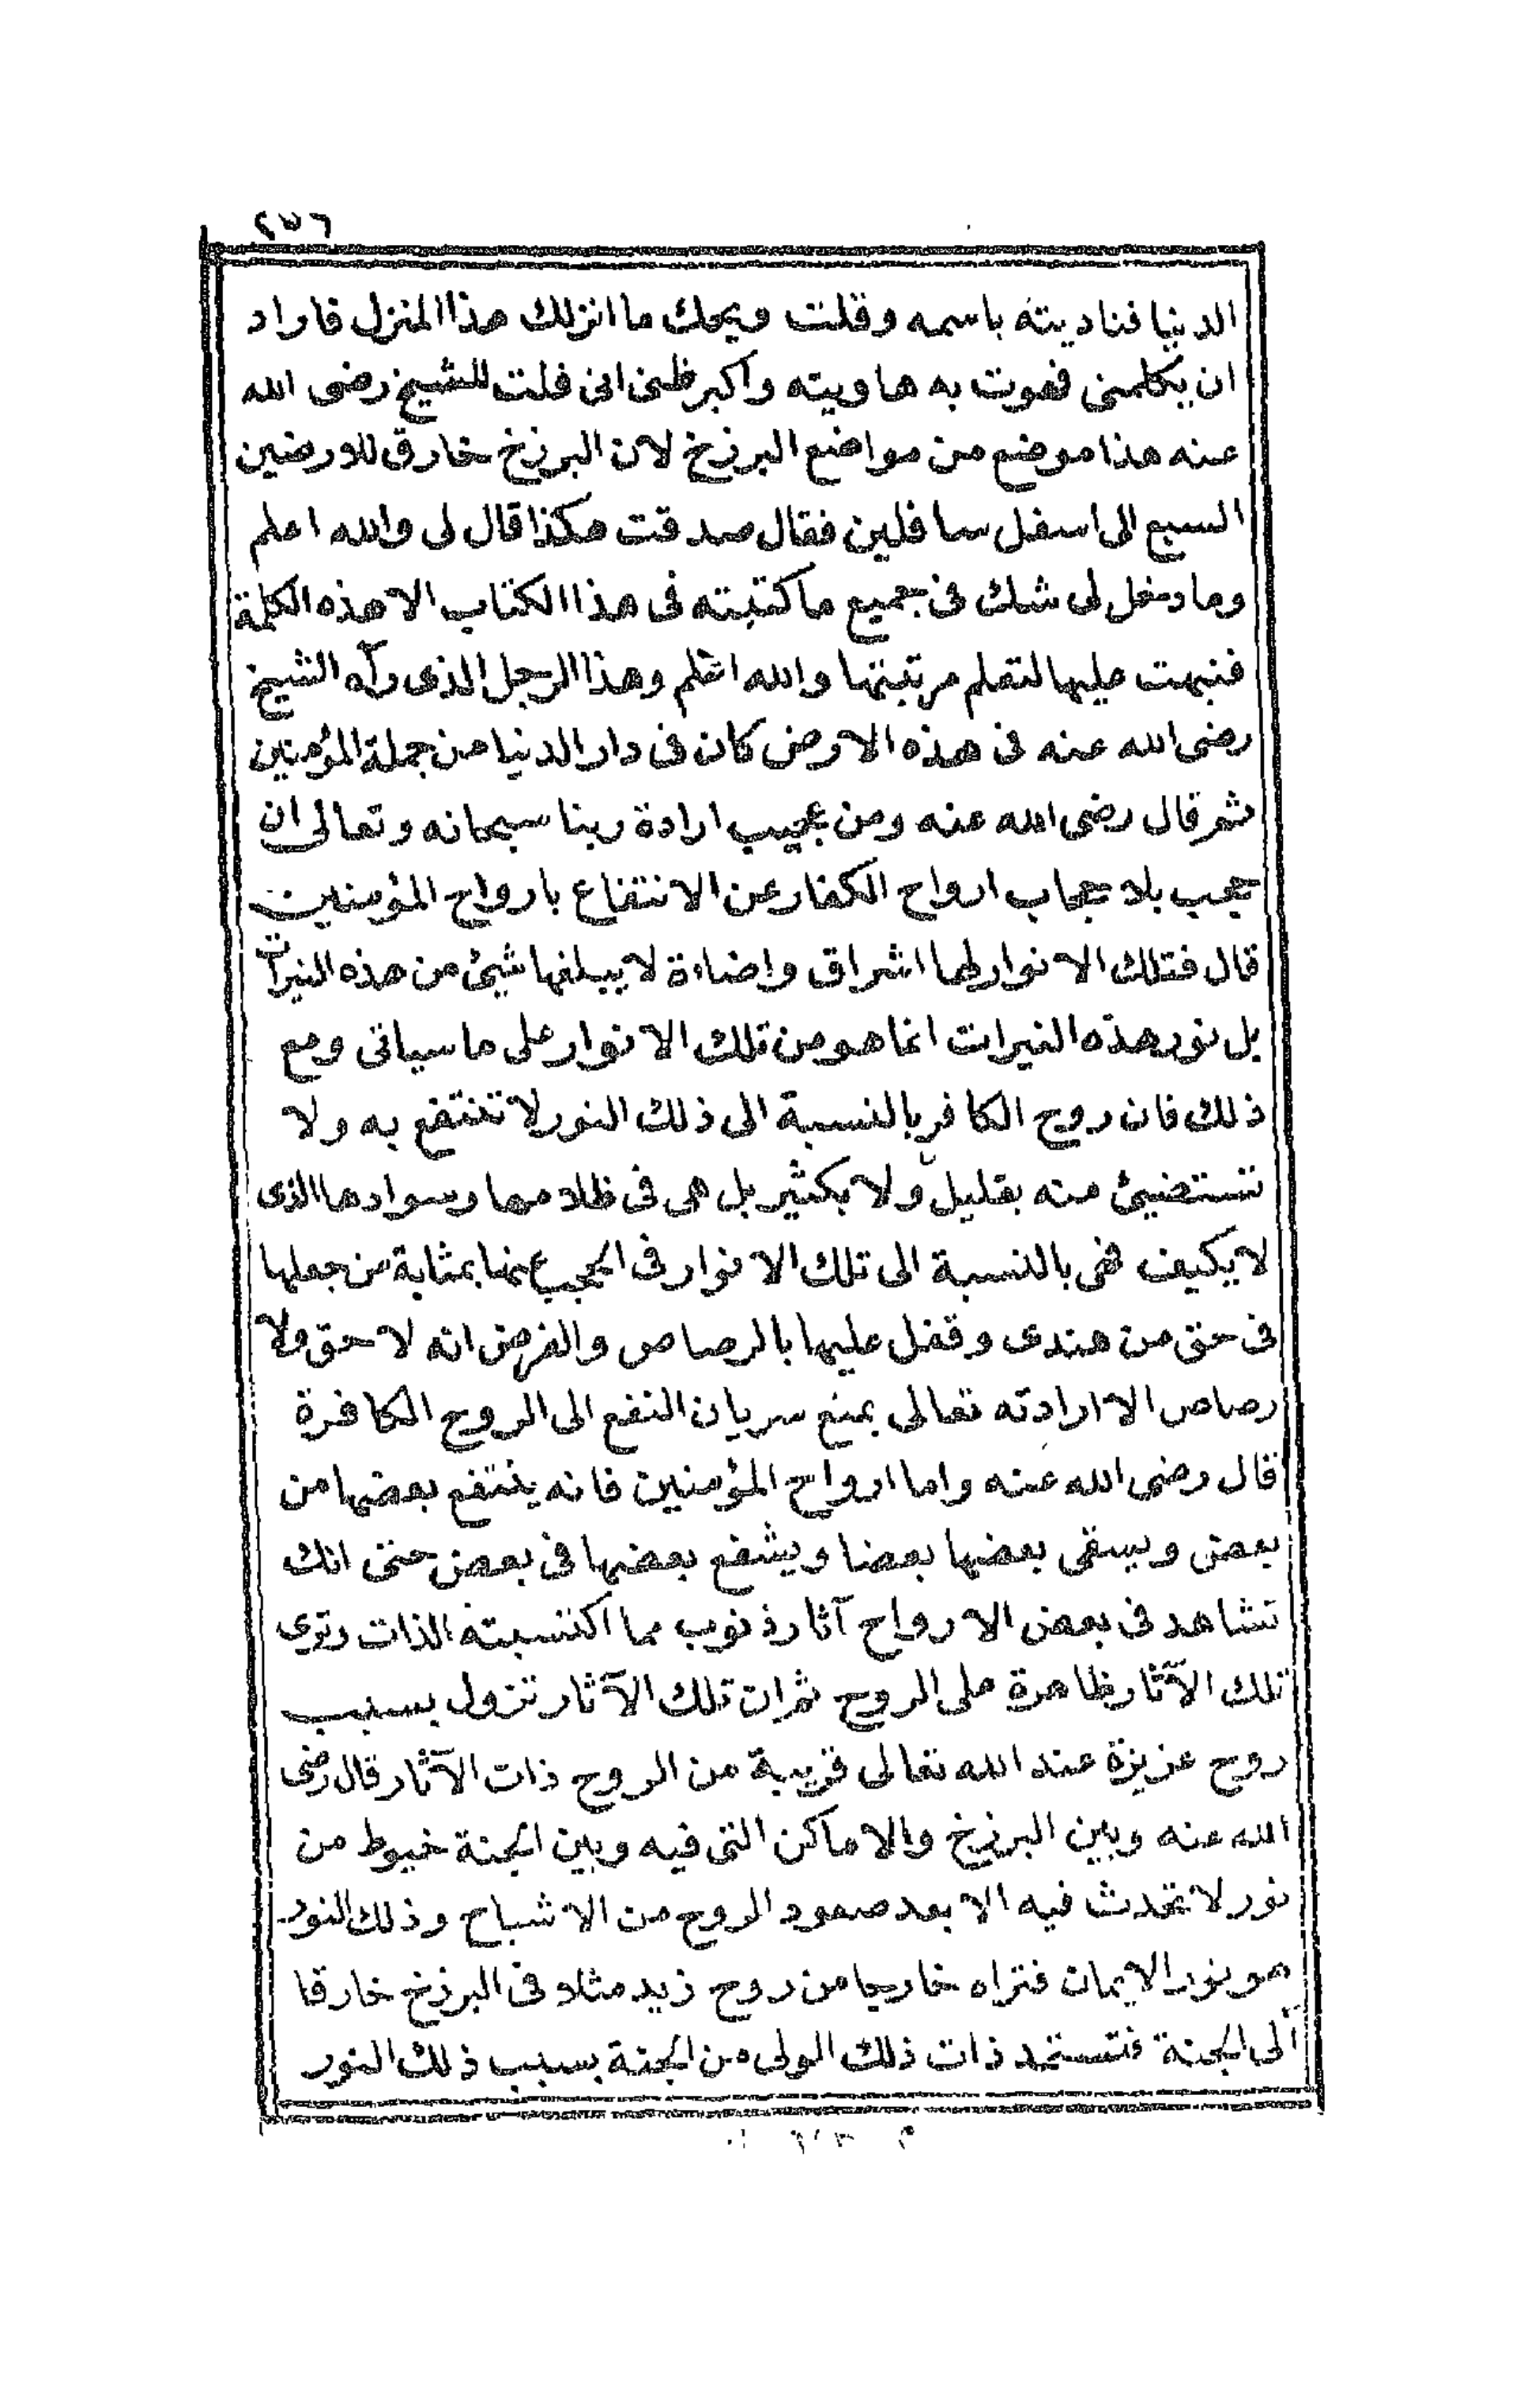 ٤٥٦
الدنيا فناديته باسمه وقلت ويحك ما انزلك هذا المنزل فاراد
ان يكلمنى فهوت به هاويته واكبر ظنى انى قلت للشيخ رضى الله
عنه هذا موضع من مواضع البرزخ لان البرزخ خارق للارضين
السبع الى اسفل سافلين فقال صدقت هكذا قال لى والله اعلم
وما دخل لى شك فى جميع ما كتبته فى هذا الكتاب الا هذه الكلمة
فنبهت عليها لتعلم مرتبتها والله اعلم وهذا الرجل الذى رآه الشيخ
رضى الله عنه فى هذه الارض كان فى دار الدنيا من جملة المؤمنين
ثم قال رضى الله عنه ومن عجيب ارادة ربنا سبحانه وتعالى ان
حجب بلا حجاب ارواح الكفار عن الانتفاع بارواح المؤمنين
قال فتلك الانوار لها اشراق واضاءة لا يبلغها شيئ من هذه النيرات
بل نور هذه النيرات انما هو من تلك الانوار على ما سياتى ومع
ذلك فان روح الكافر بالنسبة الى ذلك النور لا تنتفع به ولا
تستضيئ منه بقليل ولا بكثير بل هى فى ظلامها وسوادها الذى
لا يكيف فهى بالنسبة الى تلك الانوار فى الحجب عنها بمثابة من جعلها
فى حق من هندى وقفل عليها بالرصاص والفرض انه لا حق ولا
رصاص الا ارادته تعالى بمنع سريان النفع الى الروح الكافرة
قال رضى الله عنه واما ارواح المؤمنين فانه ينتفع بعضها من
بعض ويسقى بعضها بعضا ويشفع بعضها فى بعض حتى انك
تشاهد فى بعض الارواح آثار ذنوب مما اكتسبته الذات وترى
تلك الآثار ظاهرة على الروح ثم ان تلك الآثار تزول بسبب
روح عزيزة عند الله تعالى قريبة من الروح ذات الآثار قال رضى
الله عنه وبين البرزخ والاماكن التى فيه وبين الجنة خيوط من
نور لا تحدث فيه الا بعد صعود الروح من الاشباح وذلك النور
هو نور الايمان فتراه خارجا من روح زيد مثلا فى البرزخ خارقا
الى الجنة فتستمد ذات ذلك الولى من الجنة بسبب ذلك النور